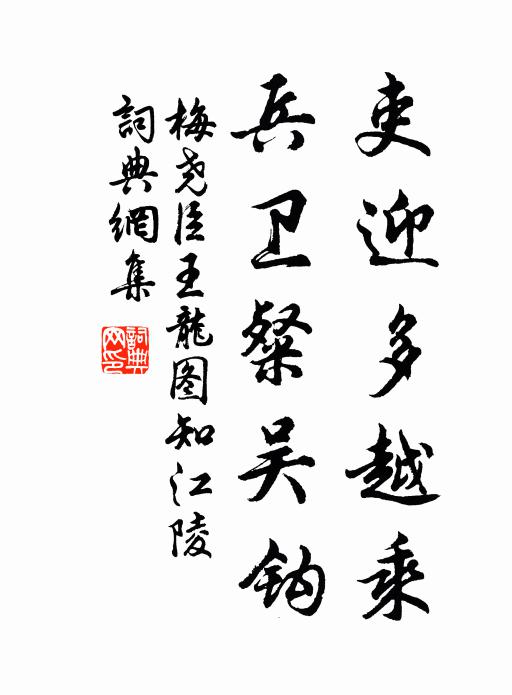 吏迎多越乘
兵卫粲吴钩
梅尧臣王龍图知江陵
詞典網集
詞典网印